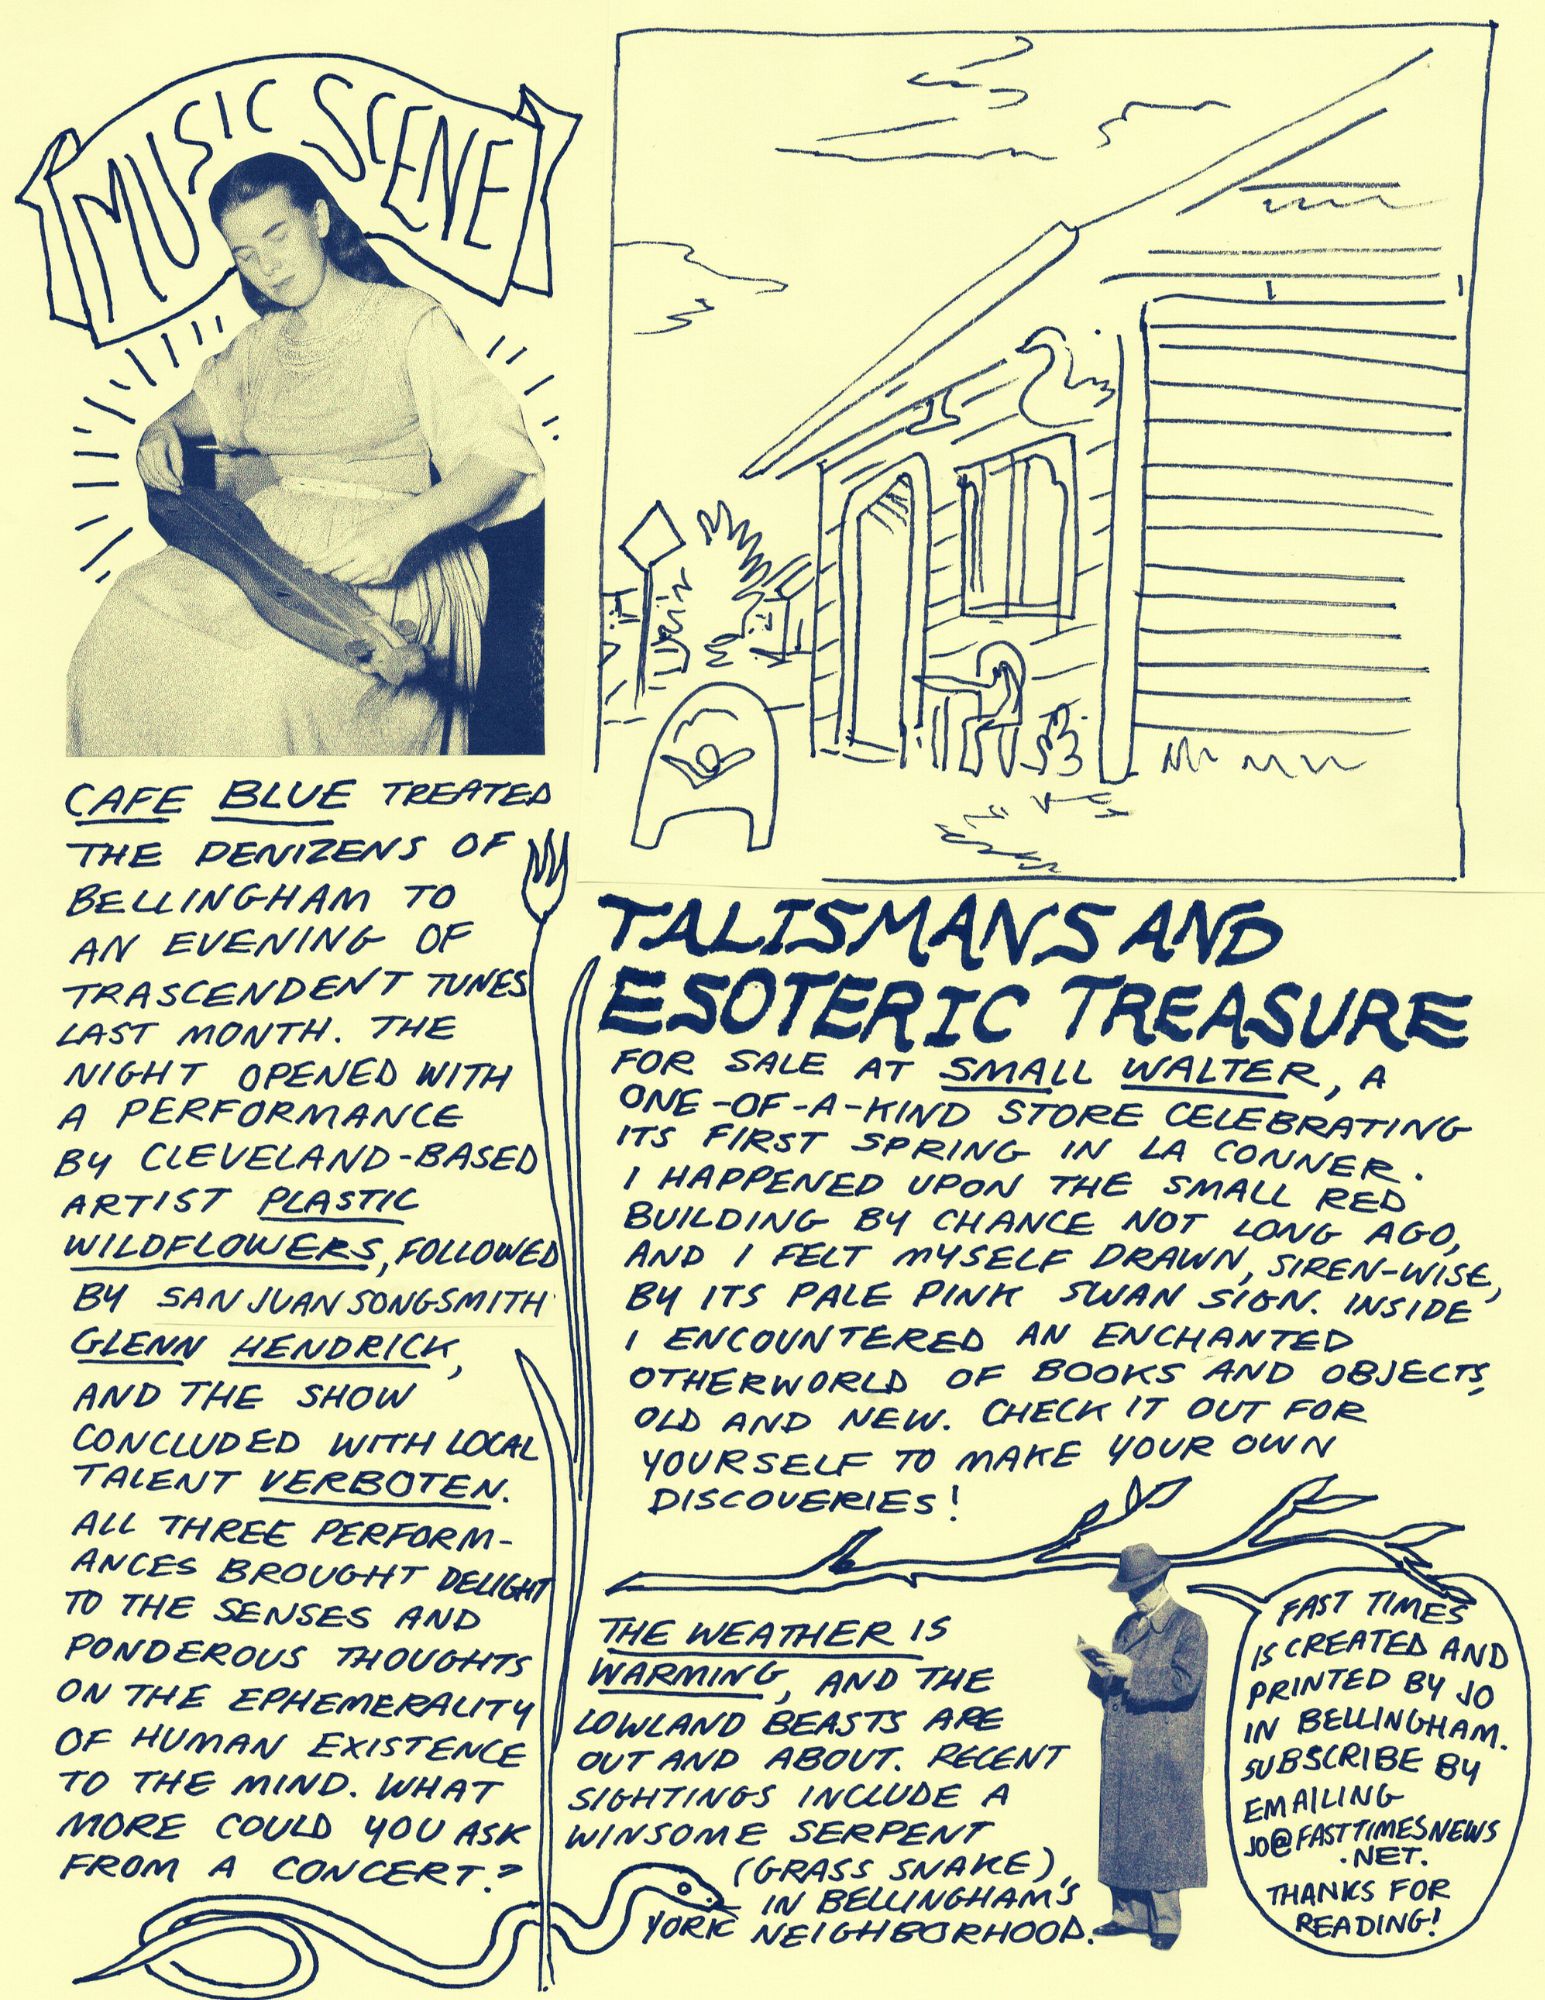 MUSIC SCENE
CAFE BLUE TREATED
THE DENIZENS OF
BELLINGHAM TO
AN EVENING OF
TRASCENDENT TUNES
LAST MONTH. THE
NIGHT OPENED WITH
A PERFORMANCE
BY CLEVELAND-BASED
ARTIST PLASTIC
WILDFLOWERS, FOLLOWED
BY SAN JUAN SONGSMITH
GLENN HENDRICK,
AND THE SHOW
CONCLUDED WITH LOCAL
TALENT VERBOTEN.
ALL THREE PERFORM-
ANCES BROUGHT DELIGHT
TO THE SENSES AND
PONDEROUS THOUGHTS
ON THE EPHEMERALITY
OF HUMAN EXISTENCE
TO THE MIND. WHAT
MORE COULD YOU ASK
FROM A CONCERT?
TALISMANS AND
ESOTERIC TREASURE
FOR SALE AT SMALL WALTER, A
ONE-OF-A-KIND STORE CELEBRATING
ITS FIRST SPRING IN LA CONNER.
I HAPPENED UPON THE SMALL RED
BUILDING BY CHANCE NOT LONG AGO,
AND I FELT MYSELF DRAWN, SIREN-WISE,
BY ITS PALE PINK SWAN SIGN. INSIDE
I ENCOUNTERED AN ENCHANTED
OTHERWORLD OF BOOKS AND OBJECTS,
OLD AND NEW. CHECK IT OUT FOR
YOURSELF TO MAKE YOUR OWN
DISCOVERIES!
THE WEATHER IS
WARMING, AND THE
LOWLAND BEASTS ARE
OUT AND ABOUT. RECENT
SIGHTINGS INCLUDE A
WINSOME SERPENT
(GRASS SNAKE),
IN BELLINGHAM'S
YORK NEIGHBORHOOD.
FAST TIMES
IS CREATED AND
PRINTED BY JO
IN BELLINGHAM.
SUBSCRIBE BY
EMAILING
JO@FASTTIMESNEWS
.NET.
THANKS FOR
READING!